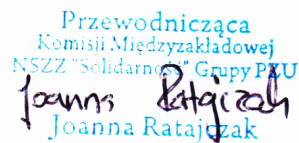 Przewodnicząca
Komisji Międzyzakładowej
NSZZ "Solidarność" Grupy PZU
Joanna Ratajczak
Joanna Ratajczak